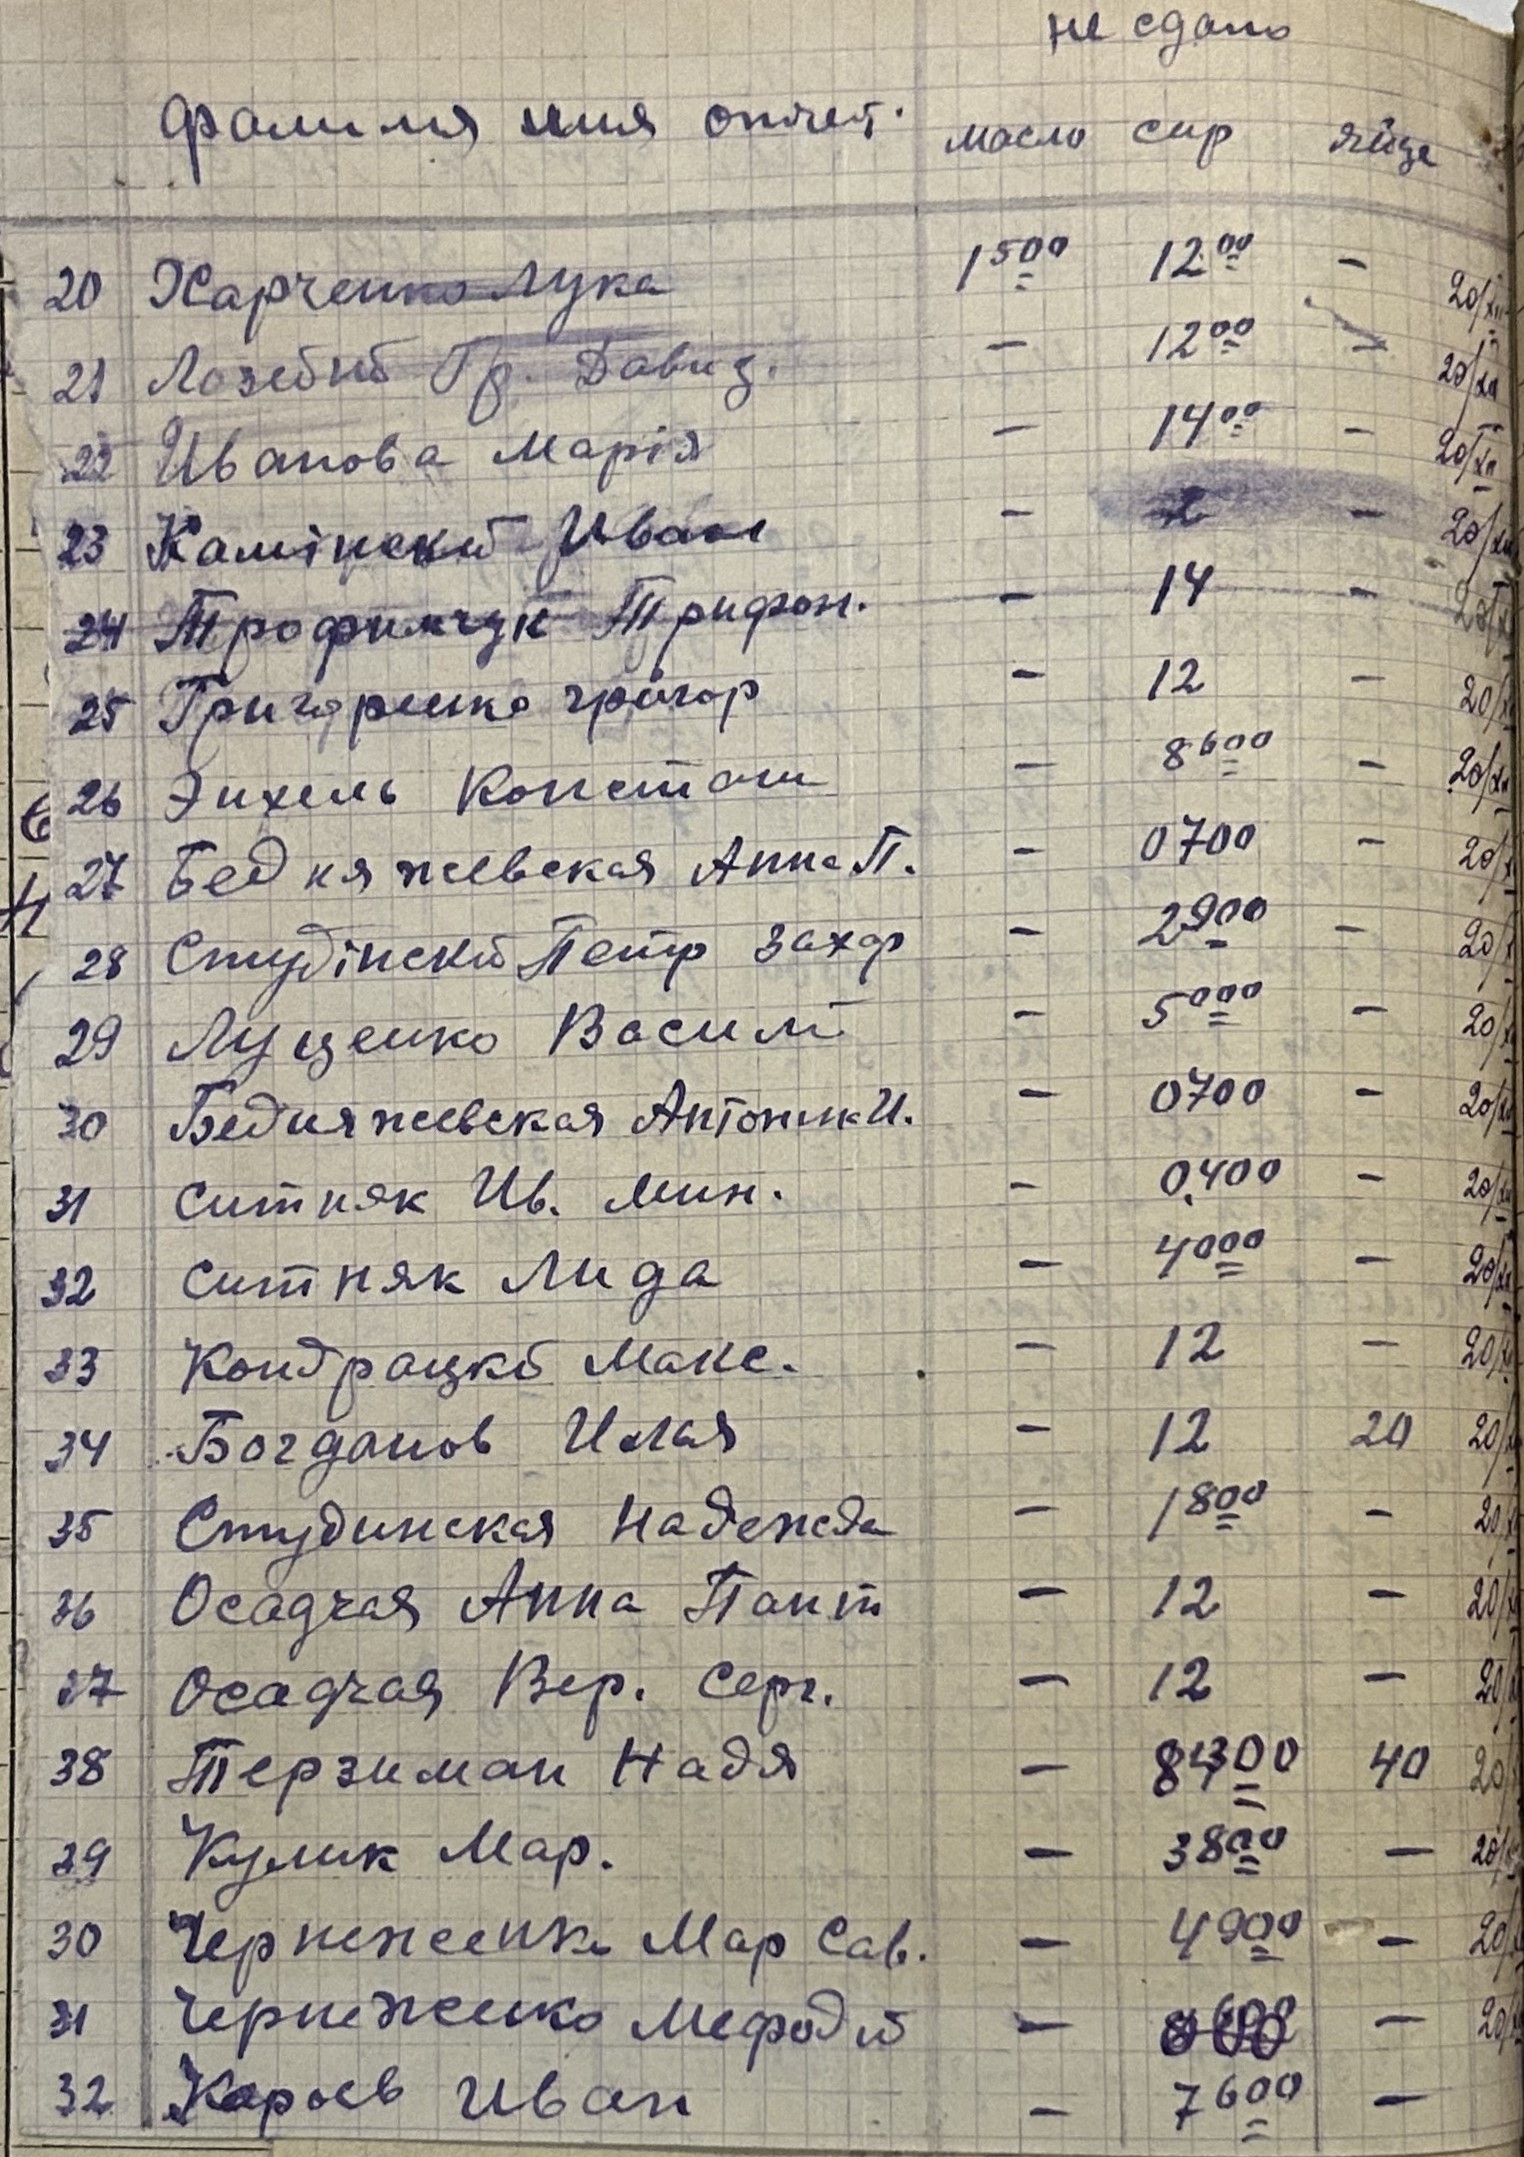 не сдано
фамилия имя отчест. масло сир яйце
20 Харченко Лука 1500 1200 - 20/XII
21 Лозебий Гр. Давид. - 1200 - 20/XII
22 Иванова Марія - 1400 - 20/XII
23 Камінский Иван - - 20/XII
24 Трофимчук Трифон. - 14 - 20/XII
25 Григоренко Григор - 12 - 20/
26 Энхель Констан - 8600 - 20/XII
27 Бедняжевская Анна П. - 0700 - 20/
28 Студінский Петр Захар - 2900 - 20/
29 Луценко Василий - 5000 - 20/
30 Бедняжевская Антонин И. - 0700 - 20/XII
31 Ситняк Ив. Мин. - 0,400 - 20/XII
32 Ситняк Лида - 4000 - 20/XII
33 Кондрацкий Макс. - 12 - 20/
34 Богданов Илья - 12 20 20/
35 Студинская Надежда - 1800 - 20/
36 Осадчая Анна Пант - 12 - 20/
37 Осадчая Вер. Серг. - 12 - 20/
38 Терзиман Надя - 84300 40 20/
39 Кулик Мар. - 3800 - 20/
30 Чернеженко Мар Сав. - 4900 - 20/
31 Чернеженко Мефодий - - 20/
32 Кароев Иван - 7600 -